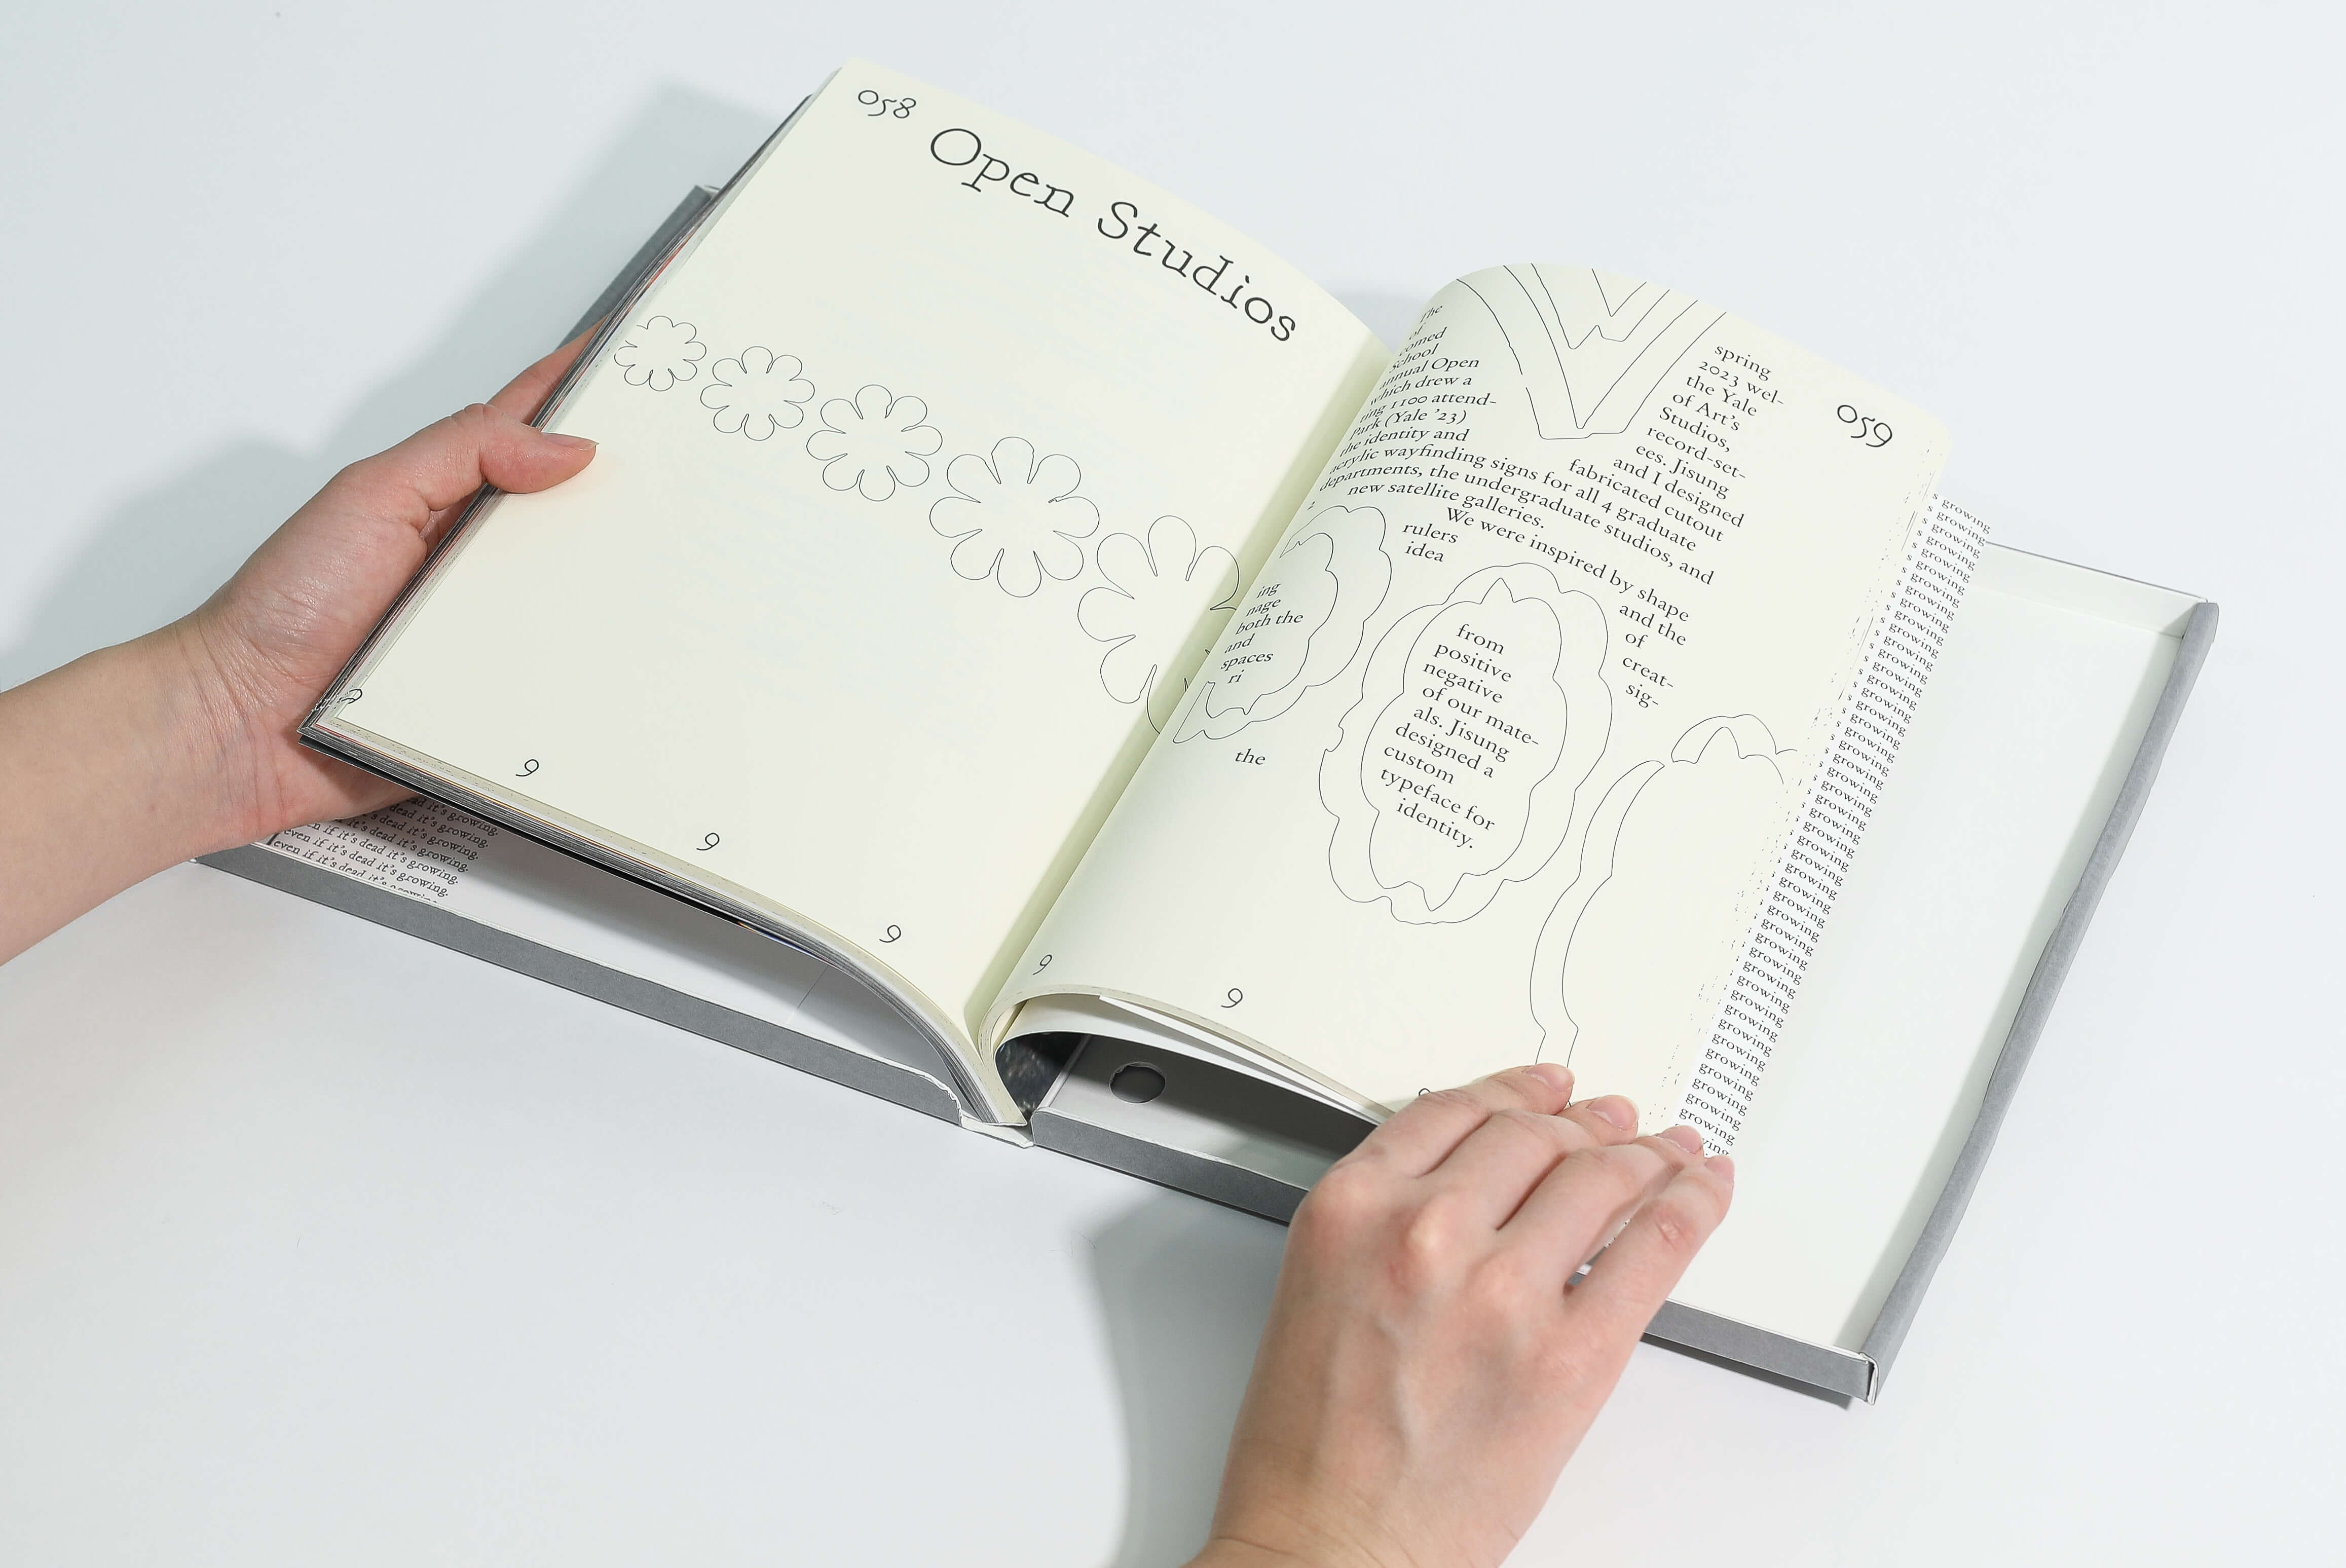 058
Open Studios
9
9
9
059
The spring
of 2023 wel-
comed the Yale
School of Art's
annual Open Studios,
which drew a record-set-
ting 1100 attend- ees. Jisung
Park (Yale '23) and I designed
the identity and fabricated cutout
acrylic wayfinding signs for all 4 graduate
departments, the undergraduate studios, and
new satellite galleries.
We were inspired by shape
rulers and the
idea of
creat-
sig-
ing
nage
both the
and
spaces
ri
the
from
positive
negative
of our mate-
als. Jisung
designed a
custom
typeface for
identity.
9
9
s growing
s growing
s growing
s growing
s growing
s growing
s growing
s growing
s growing
s growing
s growing
s growing
s growing
s growing
s growing
s growing
s growing
s growing
s growing
s growing
growing
growing
growing
growing
growing
growing
growing
growing
growing
growing
growing
growing
growing
growing
growing
growing
growing
growing
growing
growing
growing
growing
growing
growing
dead it's growing.
dead it's growing.
if it's dead it's growing.
even if it's dead it's growing.
even if it's dead it's growing.